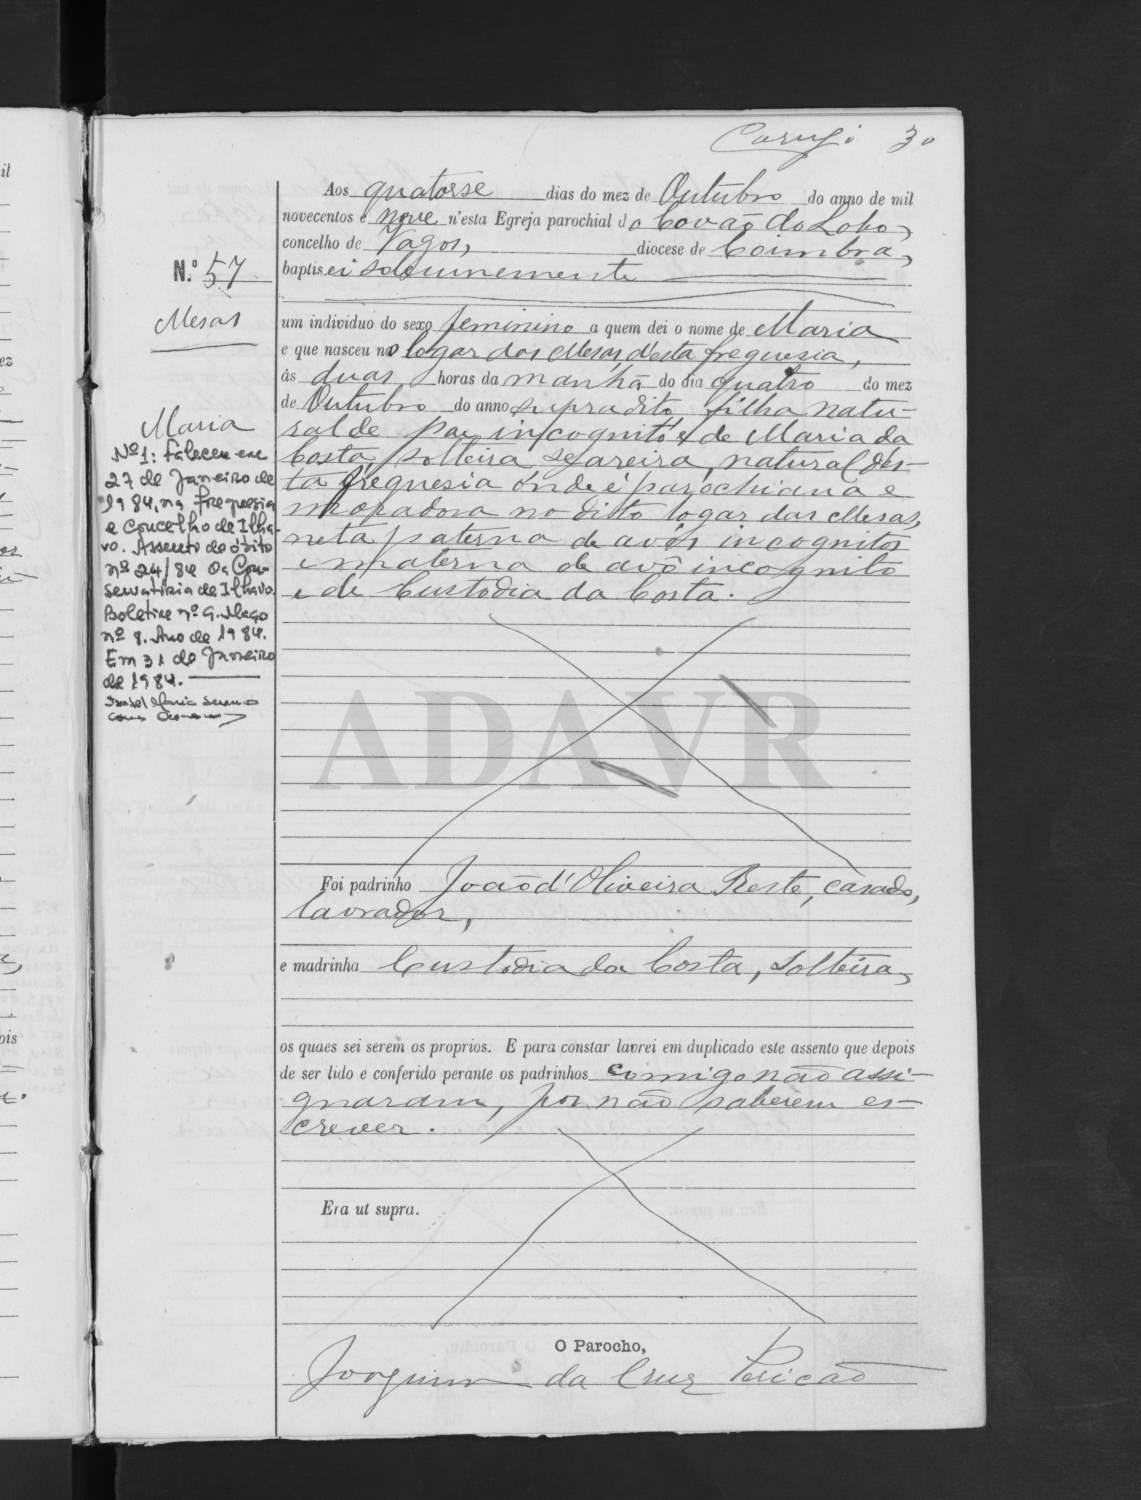 30
Aos quatorse dias do mez de Outubro do anno de mil
novecentos e nove n'esta Egreja parochial do Covão do Lobo,
concelho de Vagos, diocese de Coimbra,
baptisei solemnemente
N.º 57
Mesas
Maria
um individuo do sexo feminino a quem dei o nome de Maria
e que nasceu no logar das Mesas, d'esta freguesia,
ás duas horas da manhã do dia quatro do mez
de Outubro do anno supradito, filha natu-
ral de pae incognito e de Maria da
Costa, solteira, seareira, natural d'es-
ta freguesia onde é parochiana e
moradora no dito logar das Mesas,
neta paterna de avós incognitos
e materna de avô incognito
e de Custodia da Costa.
Nº 1: Faleceu em
27 de Janeiro de
1984, na freguesia
e concelho de Ilha-
vo. Assento de óbito
nº 24/84 da Con-
servatória de Ilhavo.
Boletim nº 9. Maço
nº 8. Ano de 1984.
Em 31 de Janeiro
de 1984.
Isabel Maria
ADAVR
Foi padrinho João d'Oliveira Reste, casado,
lavrador,
e madrinha Custodia da Costa, solteira,
os quaes sei serem os proprios. E para constar lavrei em duplicado este assento que depois
de ser lido e conferido perante os padrinhos comigo não assi-
gnaram, por não saberem es-
crever.
Era ut supra.
O Parocho,
Joaquim da Cruz Pericão